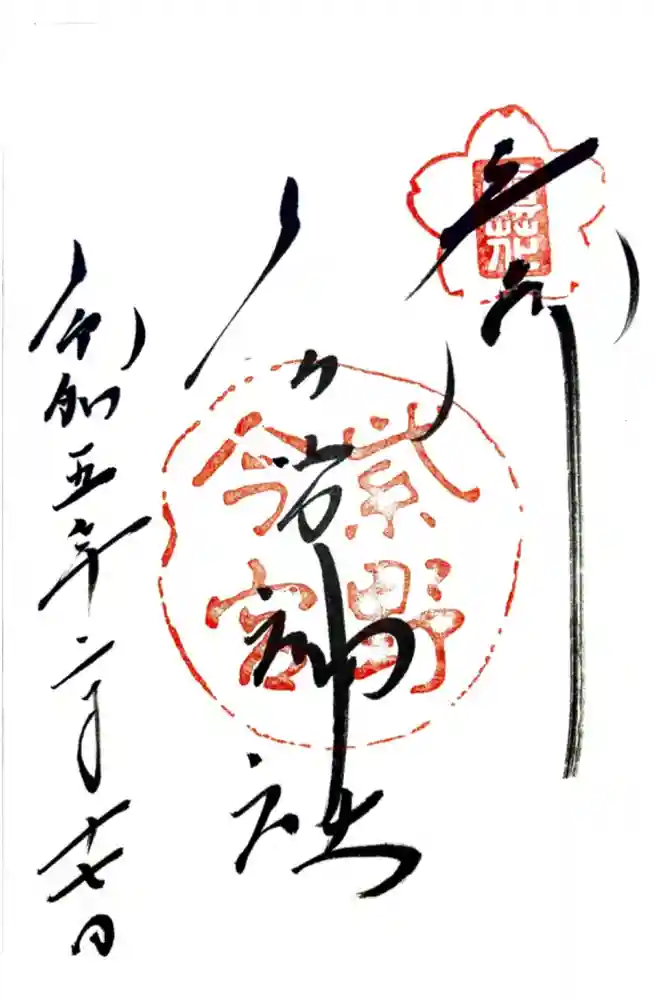 奉拝
紫野
今宮
今宮神社
令和五年二月十七日